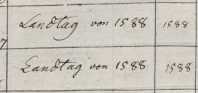 Landtag von 1588 1588
7
Landtag von 1588. 1588